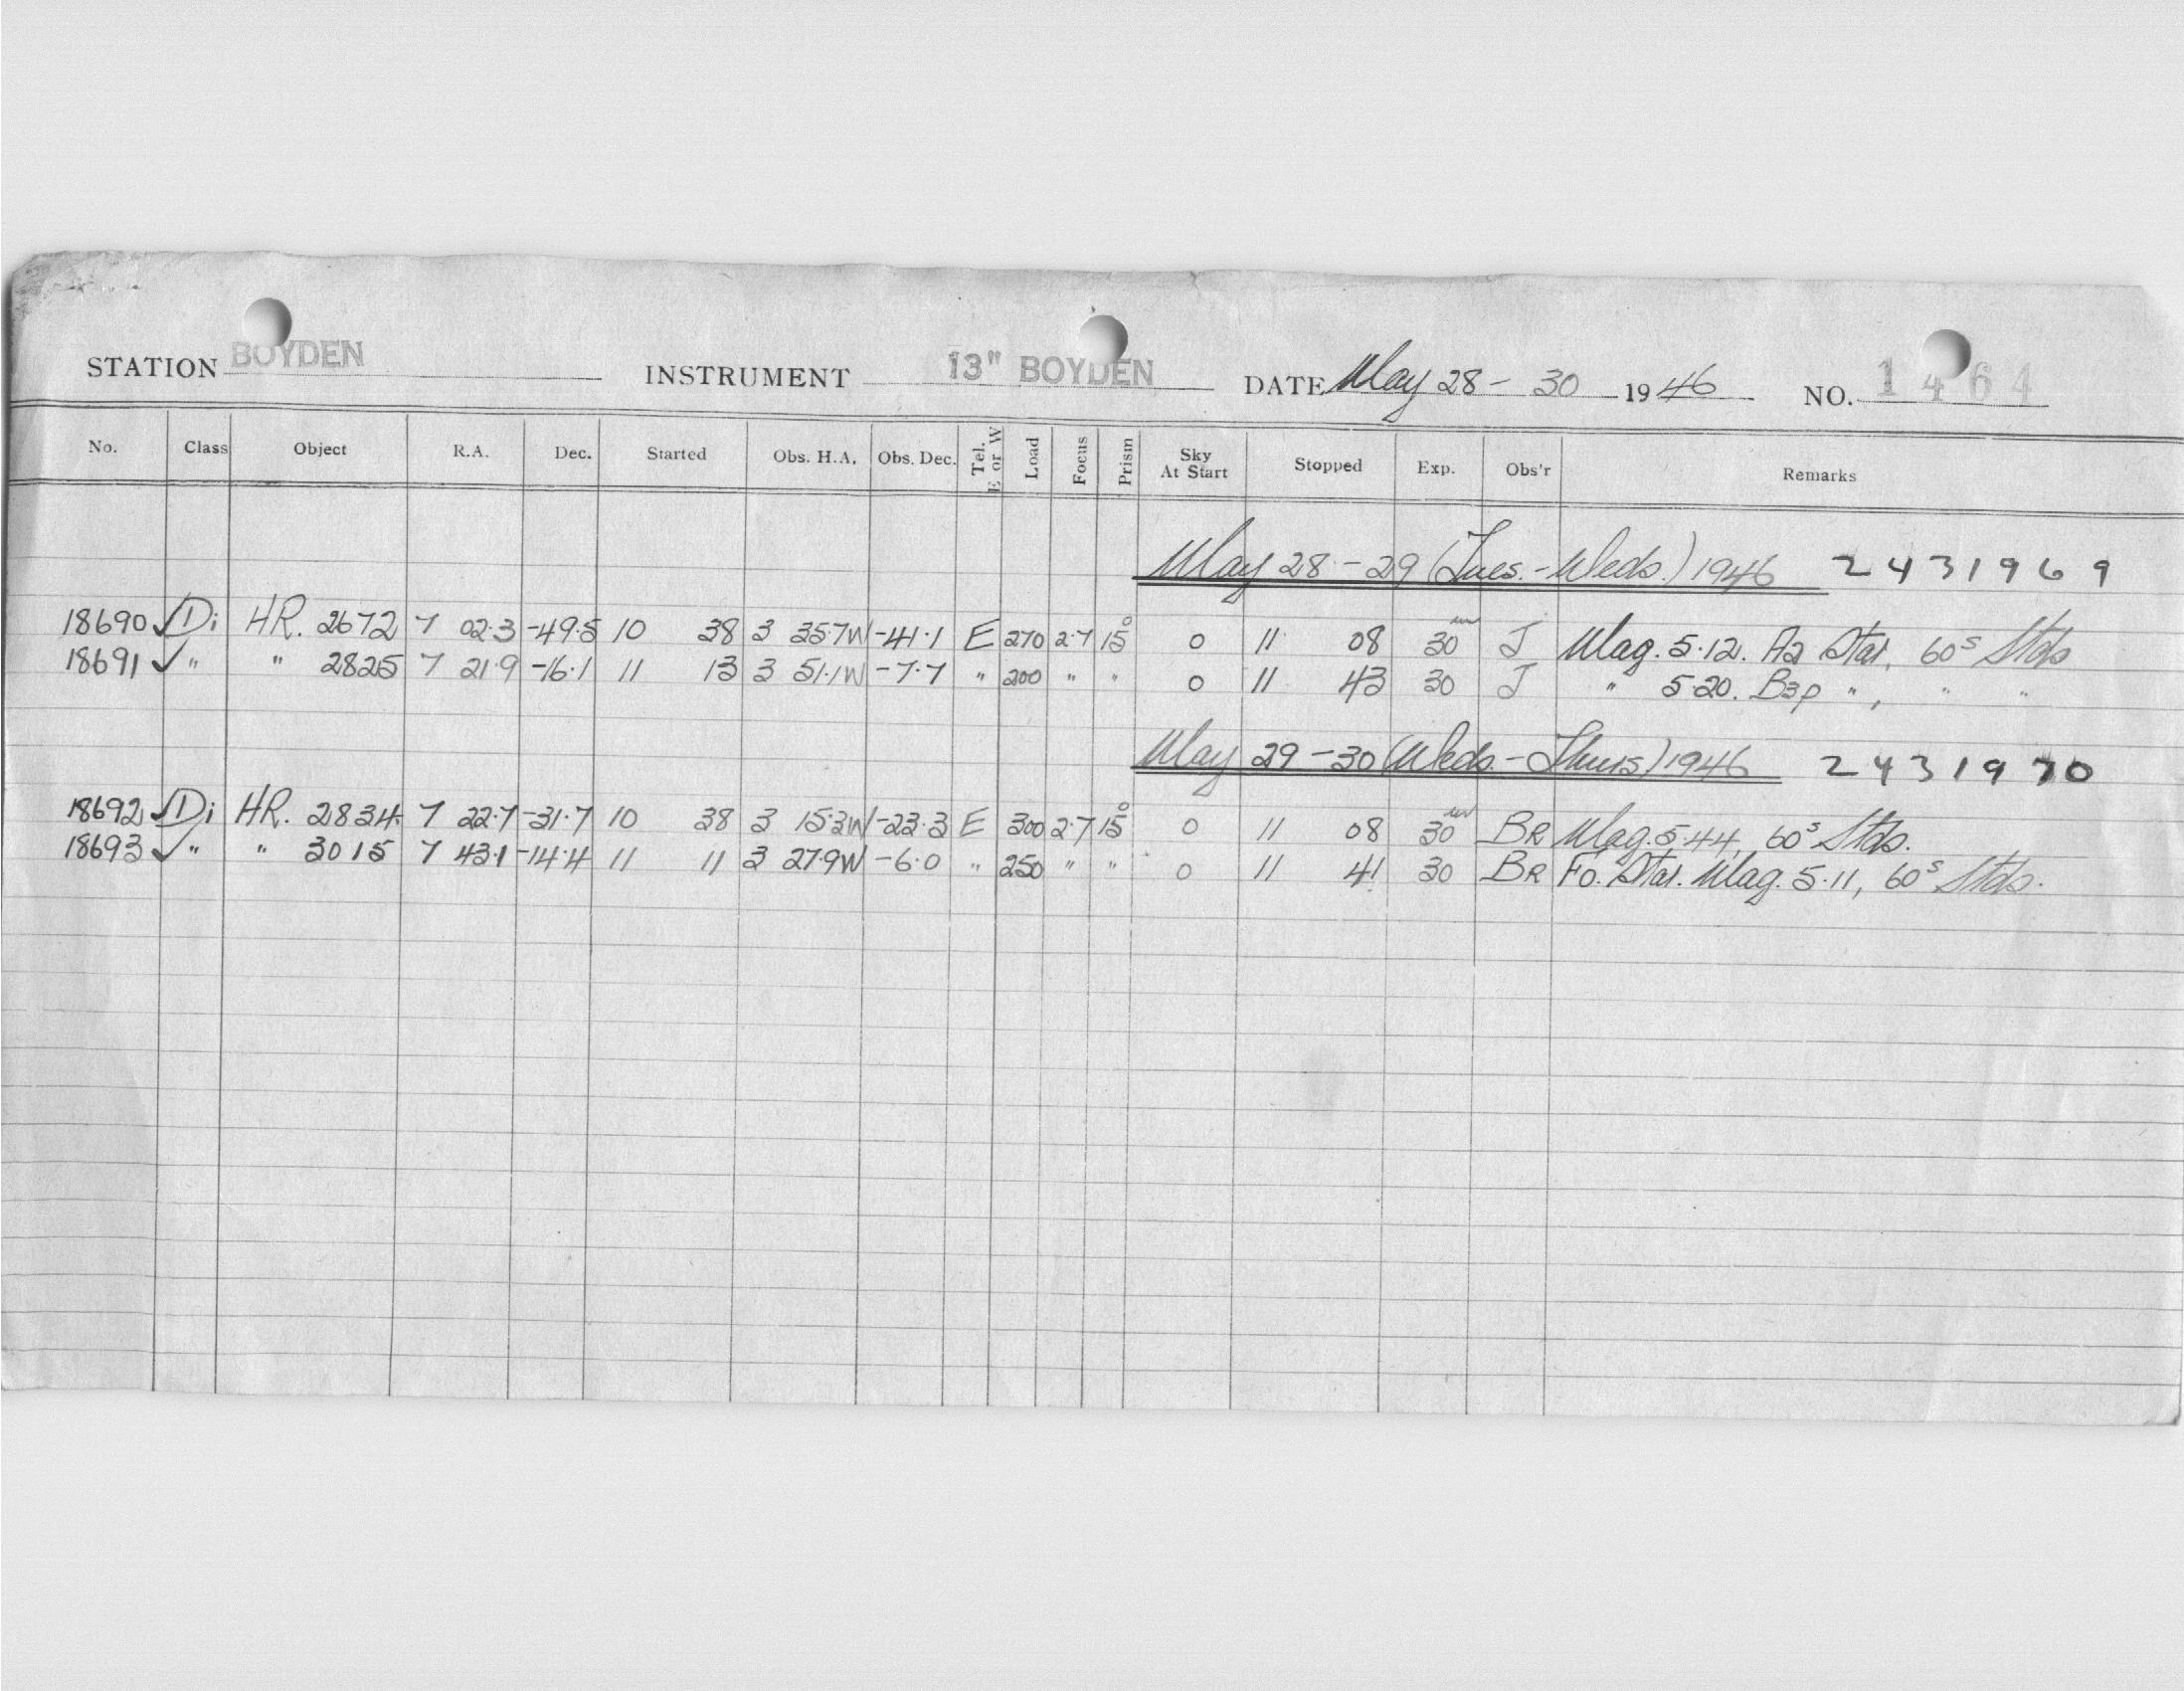 STATION BOYDEN INSTRUMENT 13" BOYDEN DATE May 28 - 30 1946 NO. 1464
No. Class Object R.A. Dec. Started Obs. H.A. Obs. Dec. Tel. E or W Load Focus Prism Sky At Start Stopped Exp. Obs'r Remarks
May 28-29 (Tues.-Weds.) 1946 2431969
18690 ✓ Di HR. 2672 7 02.3 -49.5 10 38 3 35.7W -41.1 E 270 2.7 15° 0 11 08 30m J Mag. 5.12. A2 Star, 60s Stds
18691 ✓ " " 2825 7 21.9 -16.1 11 13 3 51.1W -7.7 " 200 " " 0 11 43 30 J " 5.20. B3p ", " "
May 29-30 (Weds.-Thurs) 1946 2431970
18692 ✓ Di HR. 2834 7 22.7 -31.7 10 38 3 15.3W -23.3 E 300 2.7 15° 0 11 08 30m BR Mag. 5.44, 60s Stds.
18693 ✓ " " 3015 7 43.1 -14.4 11 11 3 27.9W -6.0 " 250 " " 0 11 41 30 BR F0. Star. Mag. 5.11, 60s Stds.